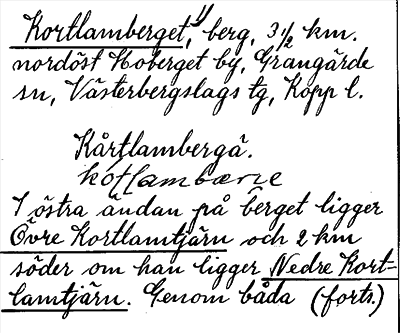 Kortlamberget, 1) berg, 3 1/2 km.
nordöst Hoberget by, Grangärde
sn, Västerbergslags tg, Kopp l.
Kårtlambergä.
I östra ändan på berget ligger
Övre Kortlamtjärn och 2 km
söder om han ligger Nedre Kort-
lamtjärn. Genom båda (forts.)